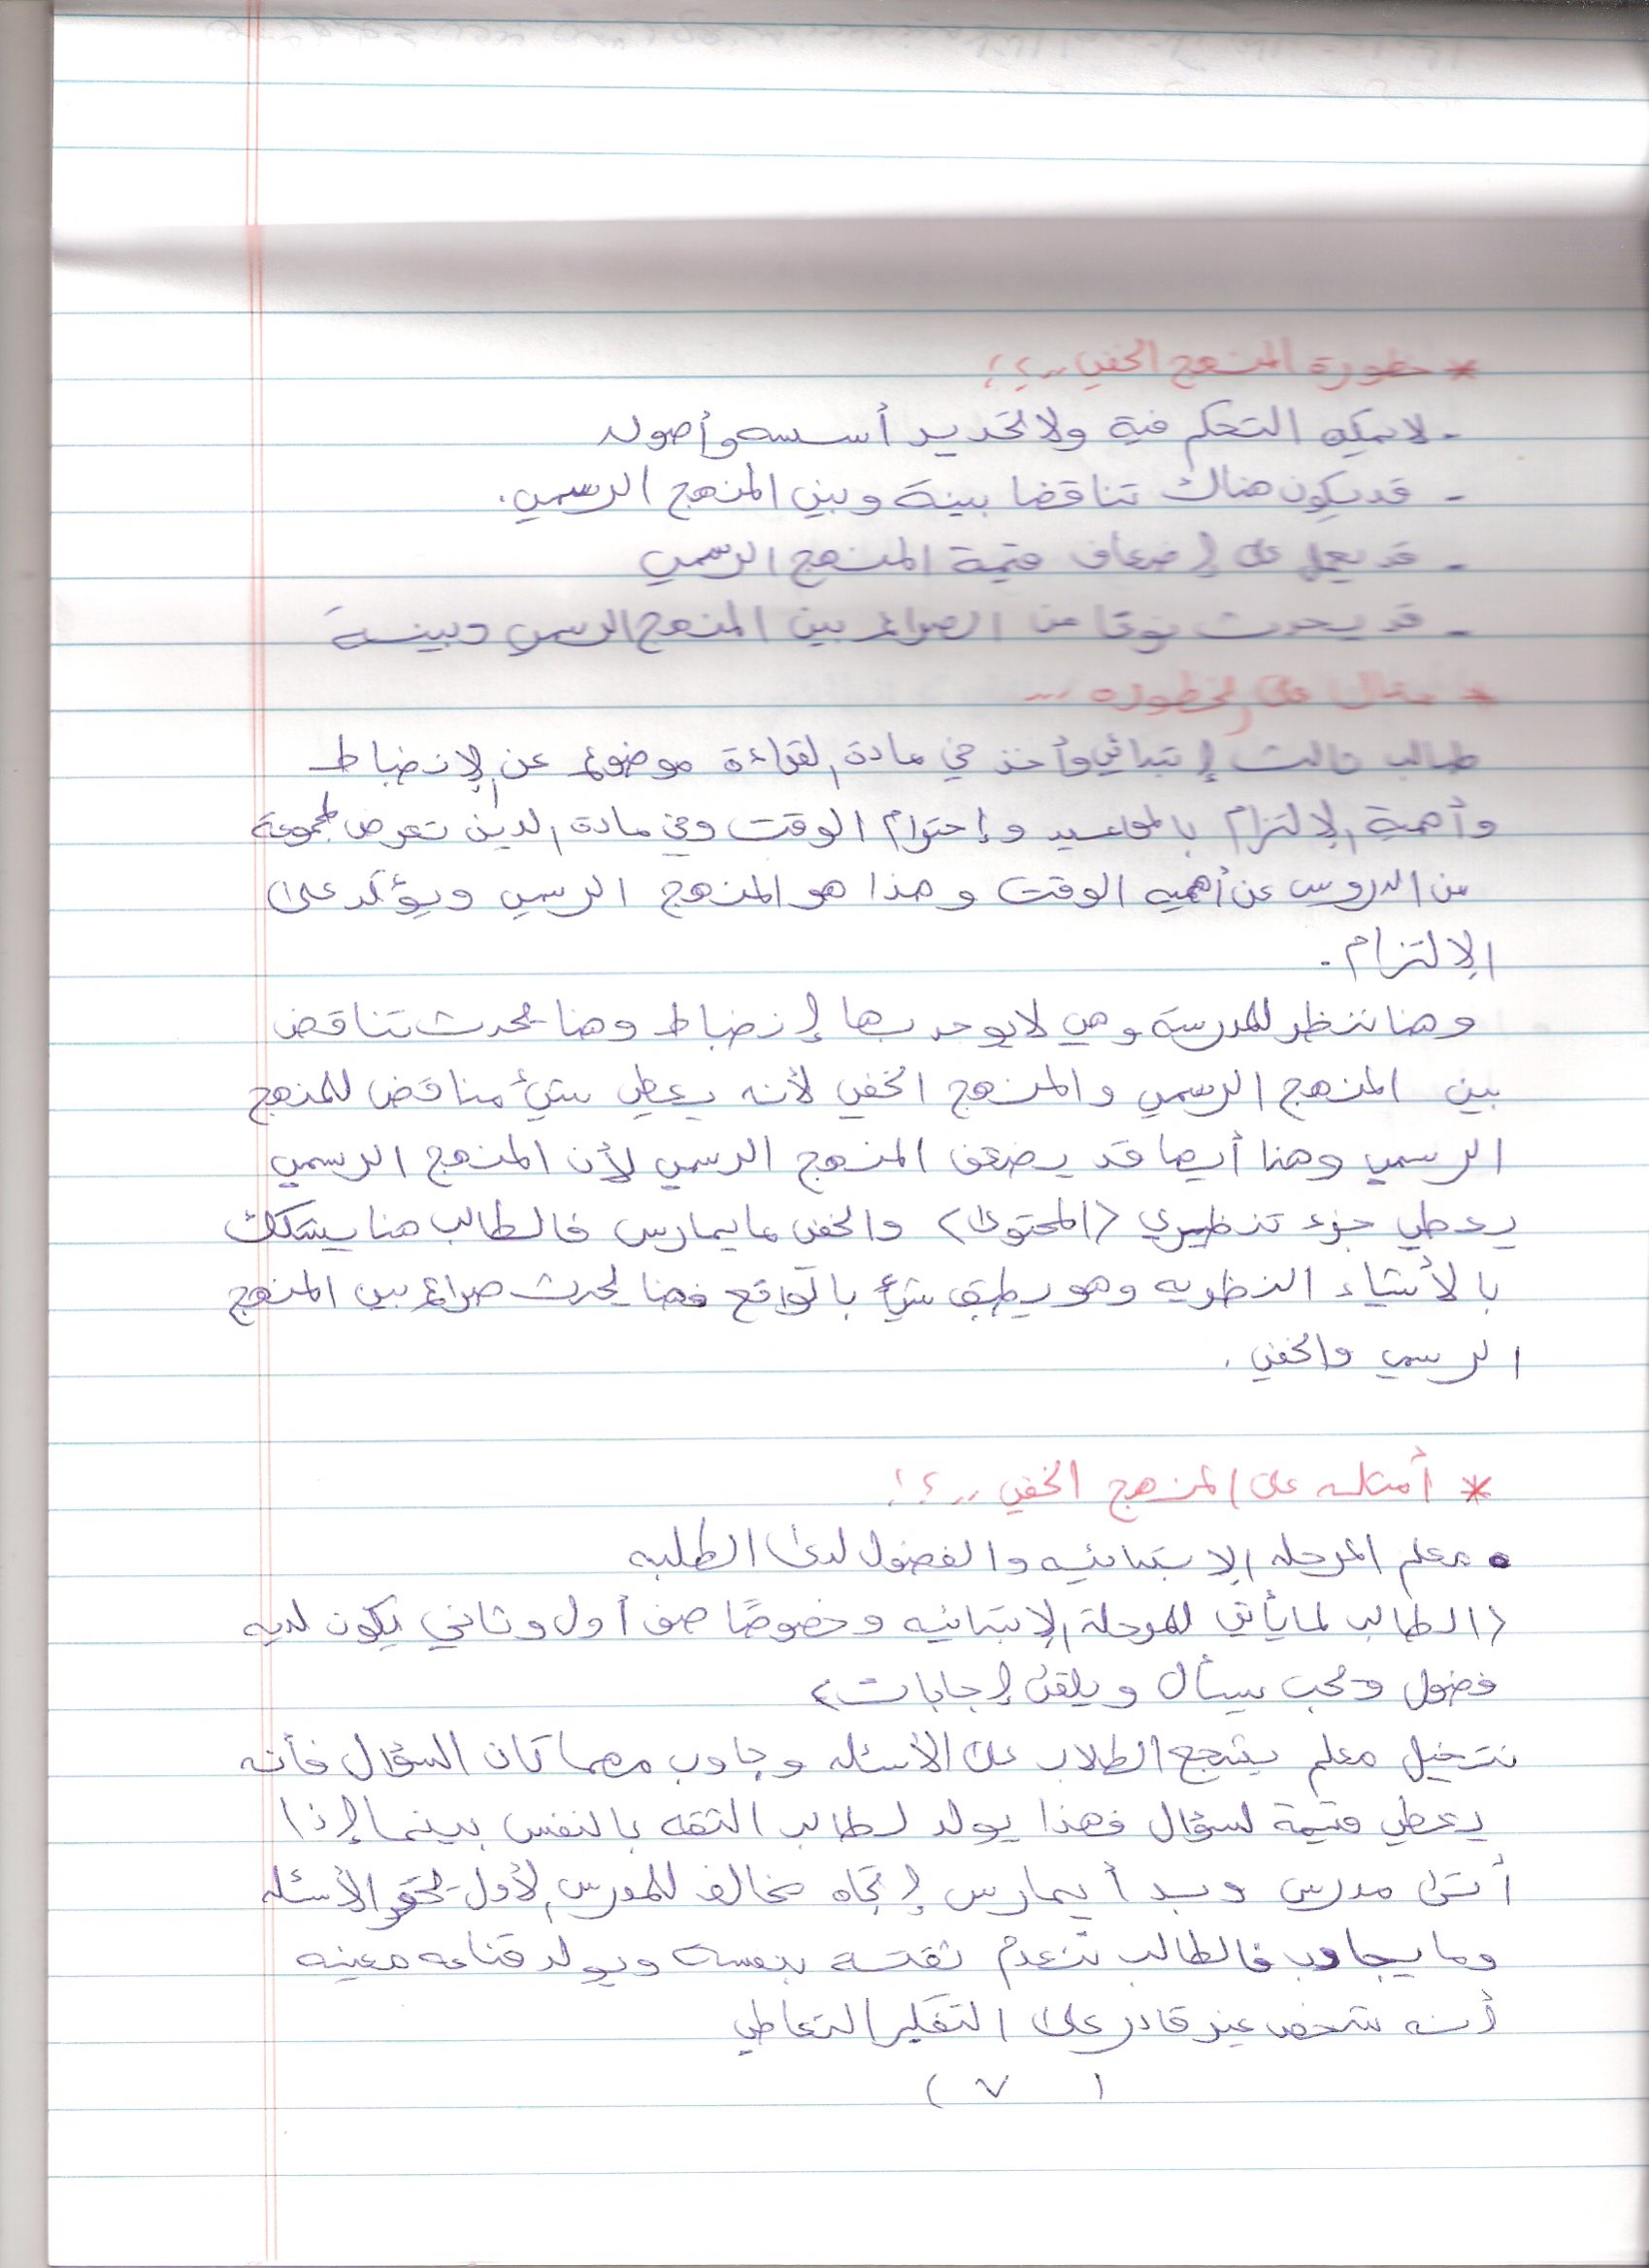 * خطورة المنهج الخفي ..؟!
- لا يمكن التحكم فية ولا تحديد أسسه وأصوله
- قد يكون هناك تناقضا بينة وبين المنهج الرسمي.
- قد يعمل على إضعاف قيمة المنهج الرسمي
- قد يحدث نوعا من الصراع بين المنهج الرسمي وبينة
* مثال على الخطوره ...
طالب ثالث إبتدائي وأخذ في مادة القراءة موضوع عن الإنضباط
وأهمية الإلتزام بالمواعيد وإحترام الوقت وفي مادة الدين تعرض لمجموعة
من الدروس عن أهميه الوقت وهذا هو المنهج الرسمي ويؤكد على
الإلتزام.
وهنا ننظر للمدرسة وهي لا يوجد بها إنضباط وهنا يحدث تناقض
بين المنهج الرسمي والمنهج الخفي لأنه يعطي شيء مناقض للمنهج
الرسمي وهنا أيضا قد يضعف المنهج الرسمي لأن المنهج الرسمي
يعطي جزء تنظيري (المحتوى) والخفي ما يمارس فالطالب هنا يشكك
بالأشياء النظريه وهو يطبق شيء بالواقع فهنا يحدث صراع بين المنهج
الرسمي والخفي.
* أمثله على المنهج الخفي ..؟!
• معلم المرحله الإبتدائيه والفضول لدى الطلبه
(الطالب لما يأتي للمرحلة الإبتدائيه وخصوصًا صف أول وثاني يكون لديه
فضول ويحب يسأل ويلقى إجابات)
نتخيل معلم يشجع الطلاب على الأسئله وجاوب مهما كان السؤال فأنه
يعطي قيمة لسؤال فهذا يولد لطالب الثقه بالنفس بينما إذا
أتى مدرس وبدأ يمارس إتجاه مخالف للمدرس الأول يحقر الأسئله
وما يجاوب فالطالب تنعدم ثقتة بنفسه ويولد قناعه معينه
أنه شخص غير قادر على التفكير التعاطي
(٧)